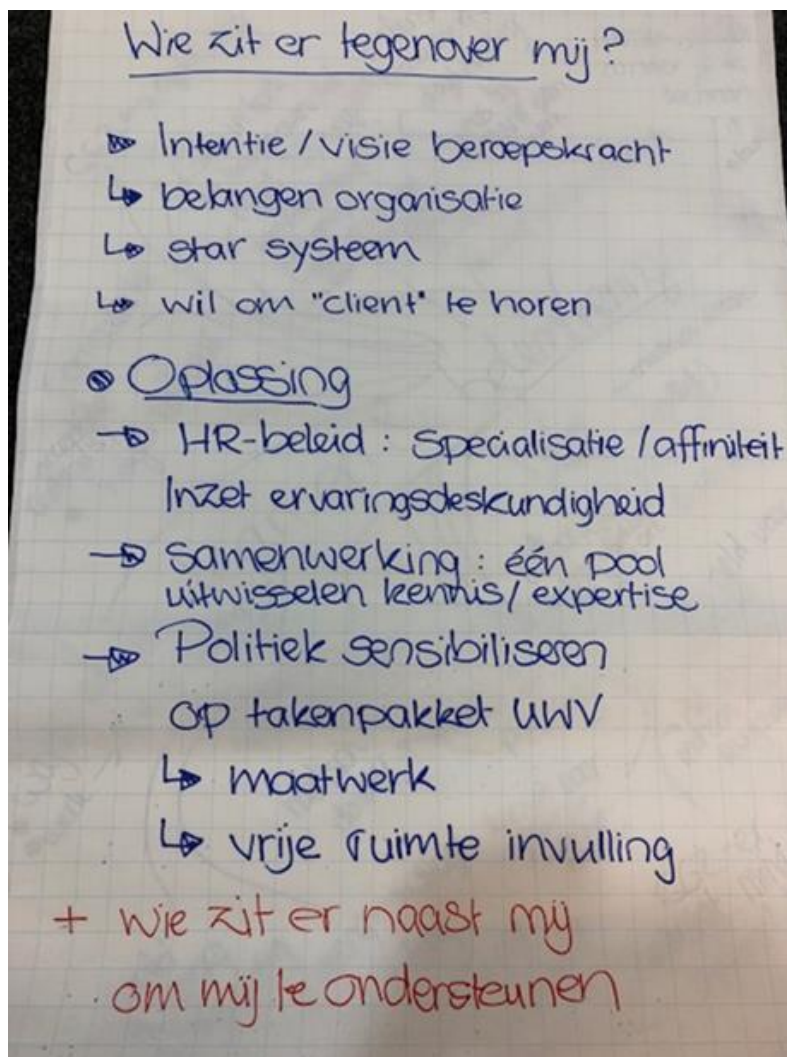 Wie zit er tegenover mij?
Intentie / visie beroepskracht
↳ belangen organisatie
↳ star systeem
↳ wil om "client" te horen
Oplossing
→ HR-beleid : Specialisatie / affiniteit
Inzet ervaringsdeskundigheid
→ Samenwerking : één pool
uitwisselen kennis / expertise
→ Politiek sensibiliseren
op takenpakket UWV
↳ maatwerk
↳ vrije ruimte invulling
+ Wie zit er naast mij
om mij te ondersteunen